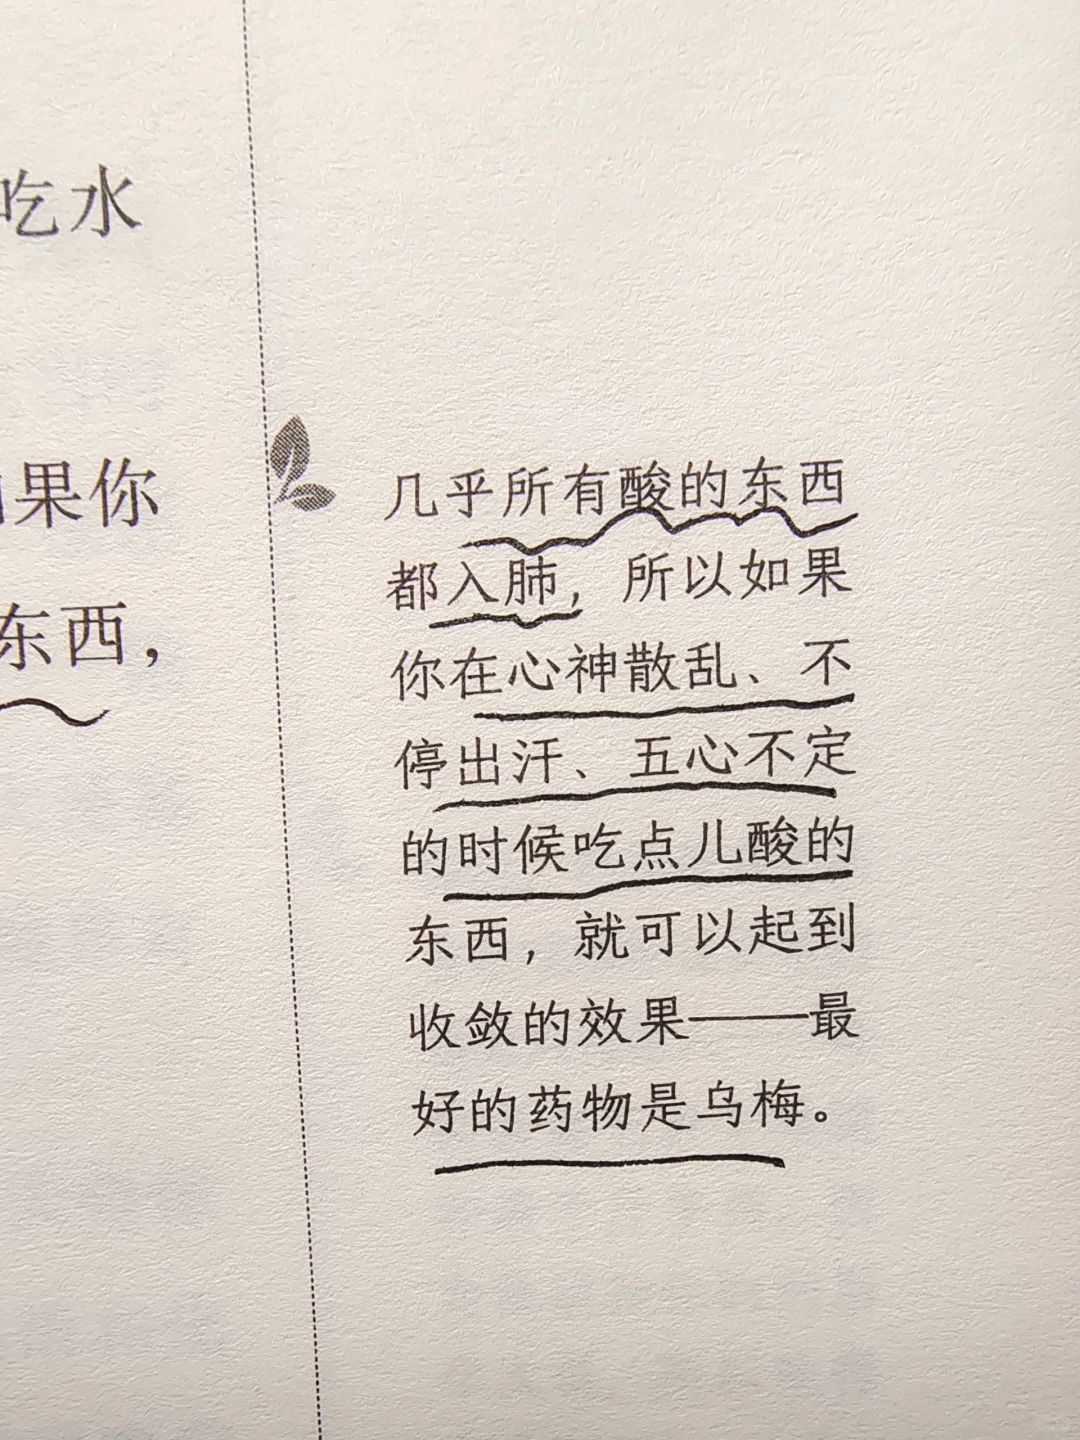 吃水
果你
东西，
几乎所有酸的东西
都入肺，所以如果
你在心神散乱、不
停出汗、五心不定
的时候吃点儿酸的
东西，就可以起到
收敛的效果——最
好的药物是乌梅。